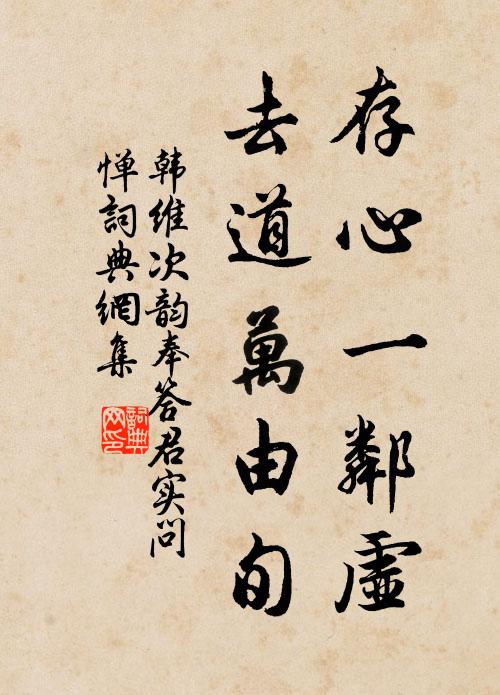 存心一鄰虛
去道萬由旬
韩维次韵奉答君实问
惮詞典網集
詞典
网印